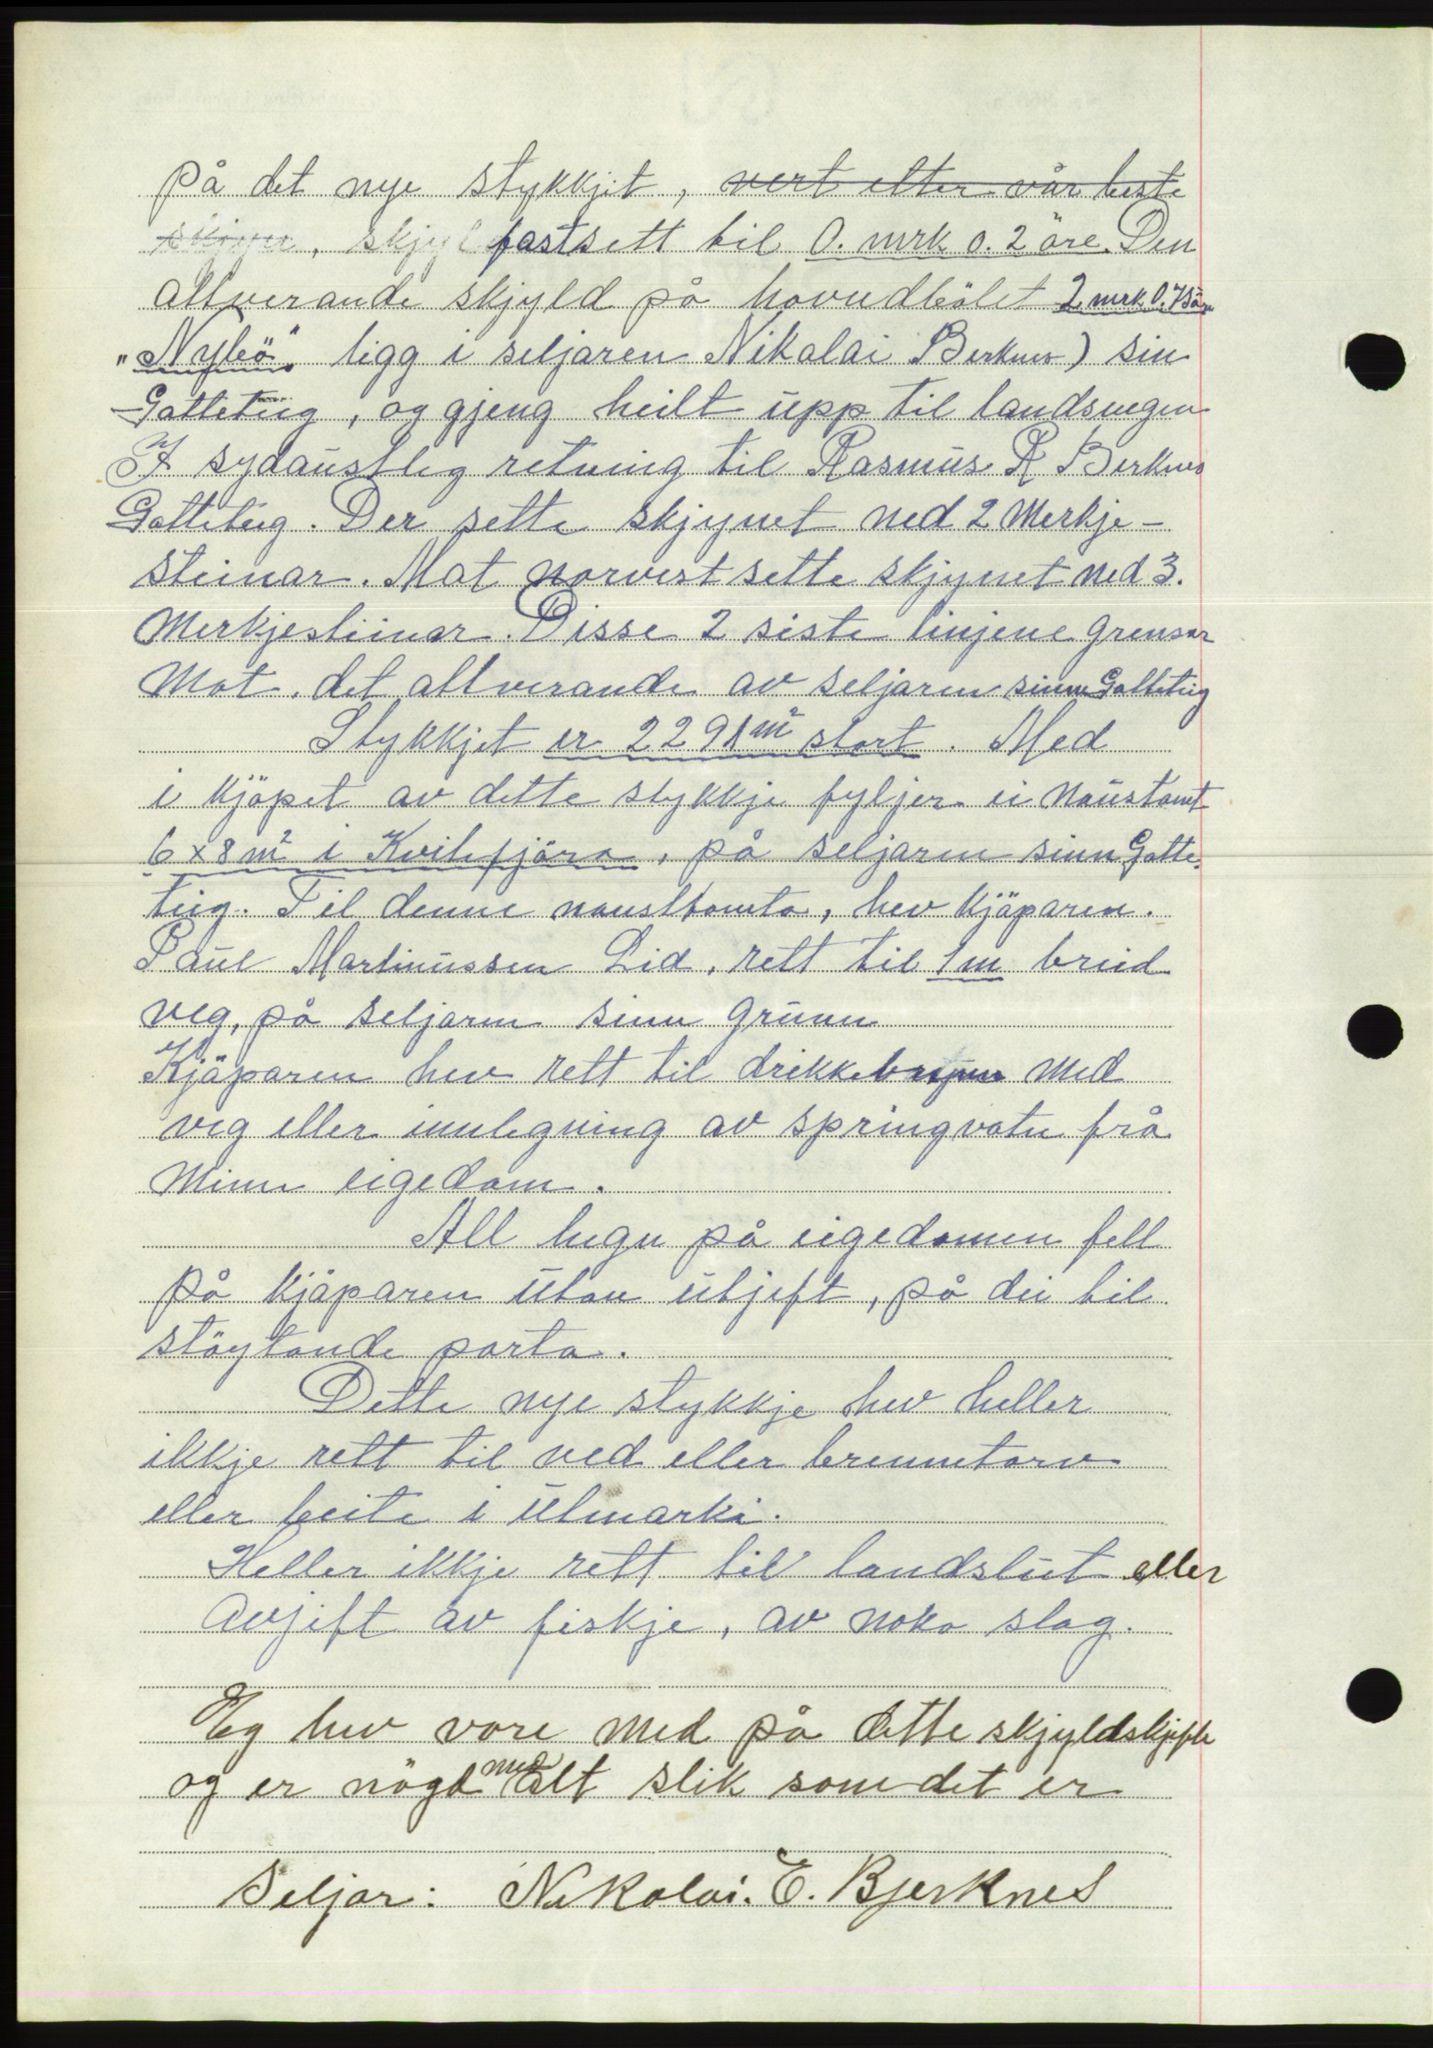 på det nye stykkjet, vert etter vår beste
skjyn, skjyl fastsett til 0. mrk o. 2 öre. Den
attverande skjyld på hovudbölet 2 mrk. 0.
"Nybö" ligg i seljaren Nikolai Berknes) sin
Gatteteig, og gjeng heilt upp til landsvegen
I sydaustleg retning til Rasmus R Berknes
Gatteteig. Der sette skjynet ned 2 Merkje-
steinar. Mot norvest sette skjynet ned 3.
Merkjesteinar. Disse 2 siste linjene grensar
Mot. det attverande av seljaren sinn Gatteteig
Stykkjet er 2291 m² stort. Med
i kjöpet av dette stykkje fyljer ei Naustomt
6 x 8 m² i Kvilefjöra, på seljaren sinn Gatte-
teig. Til denne nausttomta, hev kjöparen.
Paul Martinussen Lid, rett til 1 m breid
veg, på seljaren sinn grunn
Kjöparen hev rett til drikkebrynn med
veg eller innlegning av springvatn frå
Minn eigedom.
All hegn på eigedomen fell
på kjöparen utan utjeft, på dei til
stöytande parta.
Dette nye stykkje hev heller
ikkje rett til ved eller brennetorv
eller beite i utmarki.
Heller ikkje rett til landslut eller
Avjift av fiskje, av noko slag.
Eg hev vore med på dette skjyldskjifte
og er nögd med alt slik som det er
Seljar: Nikolai. E. Bjerknes